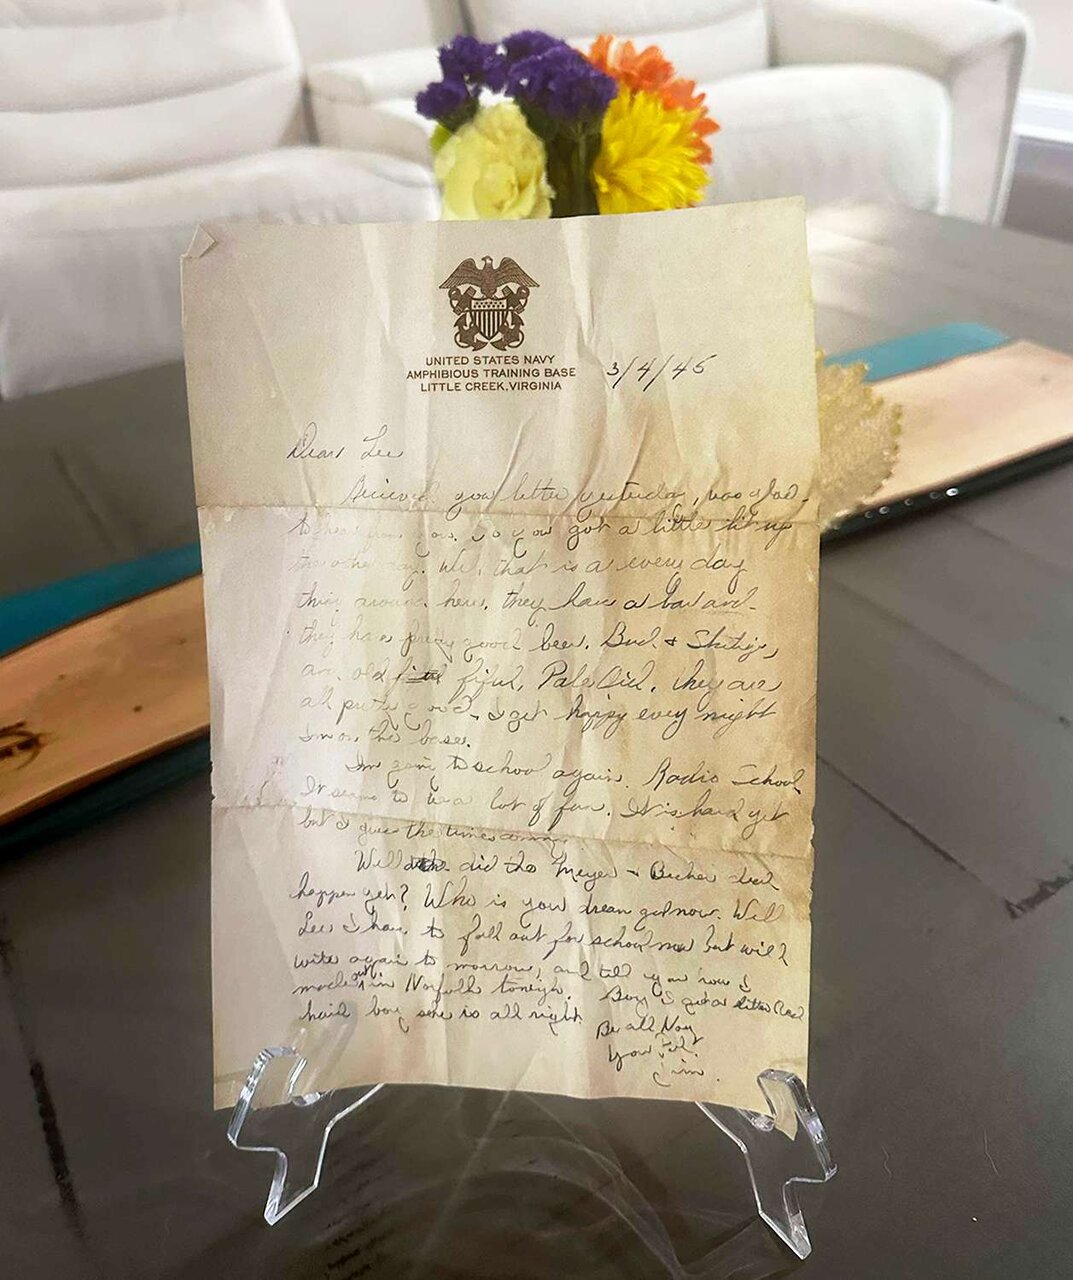 UNITED STATES NAVY
AMPHIBIOUS TRAINING BASE
LITTLE CREEK, VIRGINIA
3/4/45
Dear Lee
Recieved your letter yesterday, was glad
to hear from you. So you got a little lit up
the other day. Well, that is a every day
thing around here. they have a bar and
they have pretty good beer. Bud. &
an old Pale they are
all pretty good. I get happy every night
Im on the base.
Im going to school again. Radio School
It seems to be a lot of fun. It is hard yet
but I guess the time
Well did the Meyer & Becker deal
happen yet? Who is your dream girl now. Well
Lee I have to fall out for school now but will
write again to morrow, and tell you how I
made out in Norfolk tonight. Boy I got a little Red
haid boy she is all right
Be all Now
Your
Jim.